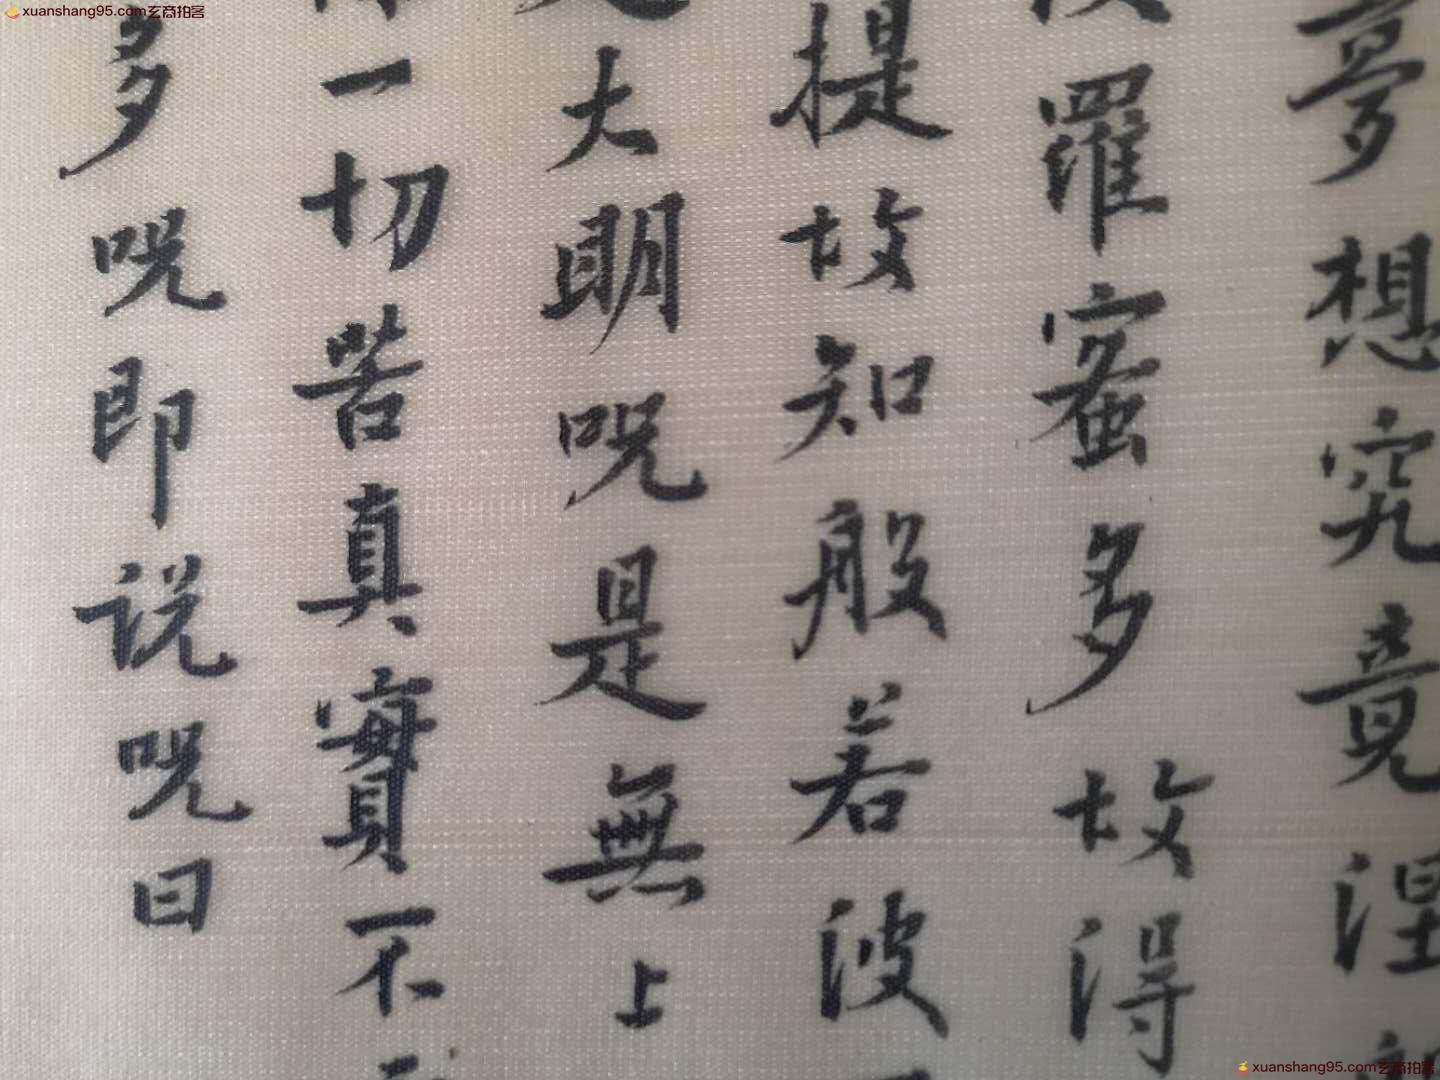 xuanshang95.com玄商拍客
夢想究竟涅
羅蜜多故得
提故知般若波
大明咒是無上
一切苦真實不
多咒即説咒曰
xuanshang95.com玄商拍客